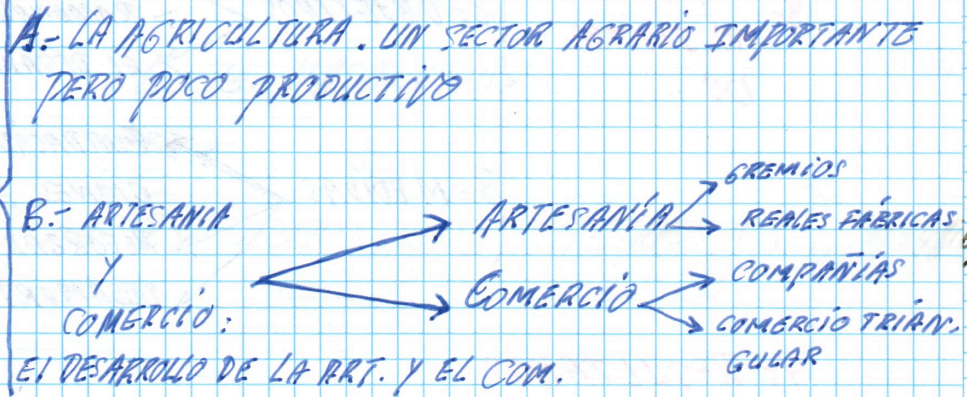 A.- LA AGRICULTURA. UN SECTOR AGRARIO IMPORTANTE
PERO POCO PRODUCTIVO
B.- ARTESANIA
Y
COMERCIO:
El DESARROLLO DE LA ART. Y EL COM.
ARTESANÍA
GREMIOS
REALES FÁBRICAS
COMERCIO
COMPAÑÍAS
COMERCIO TRIÁN-
GULAR